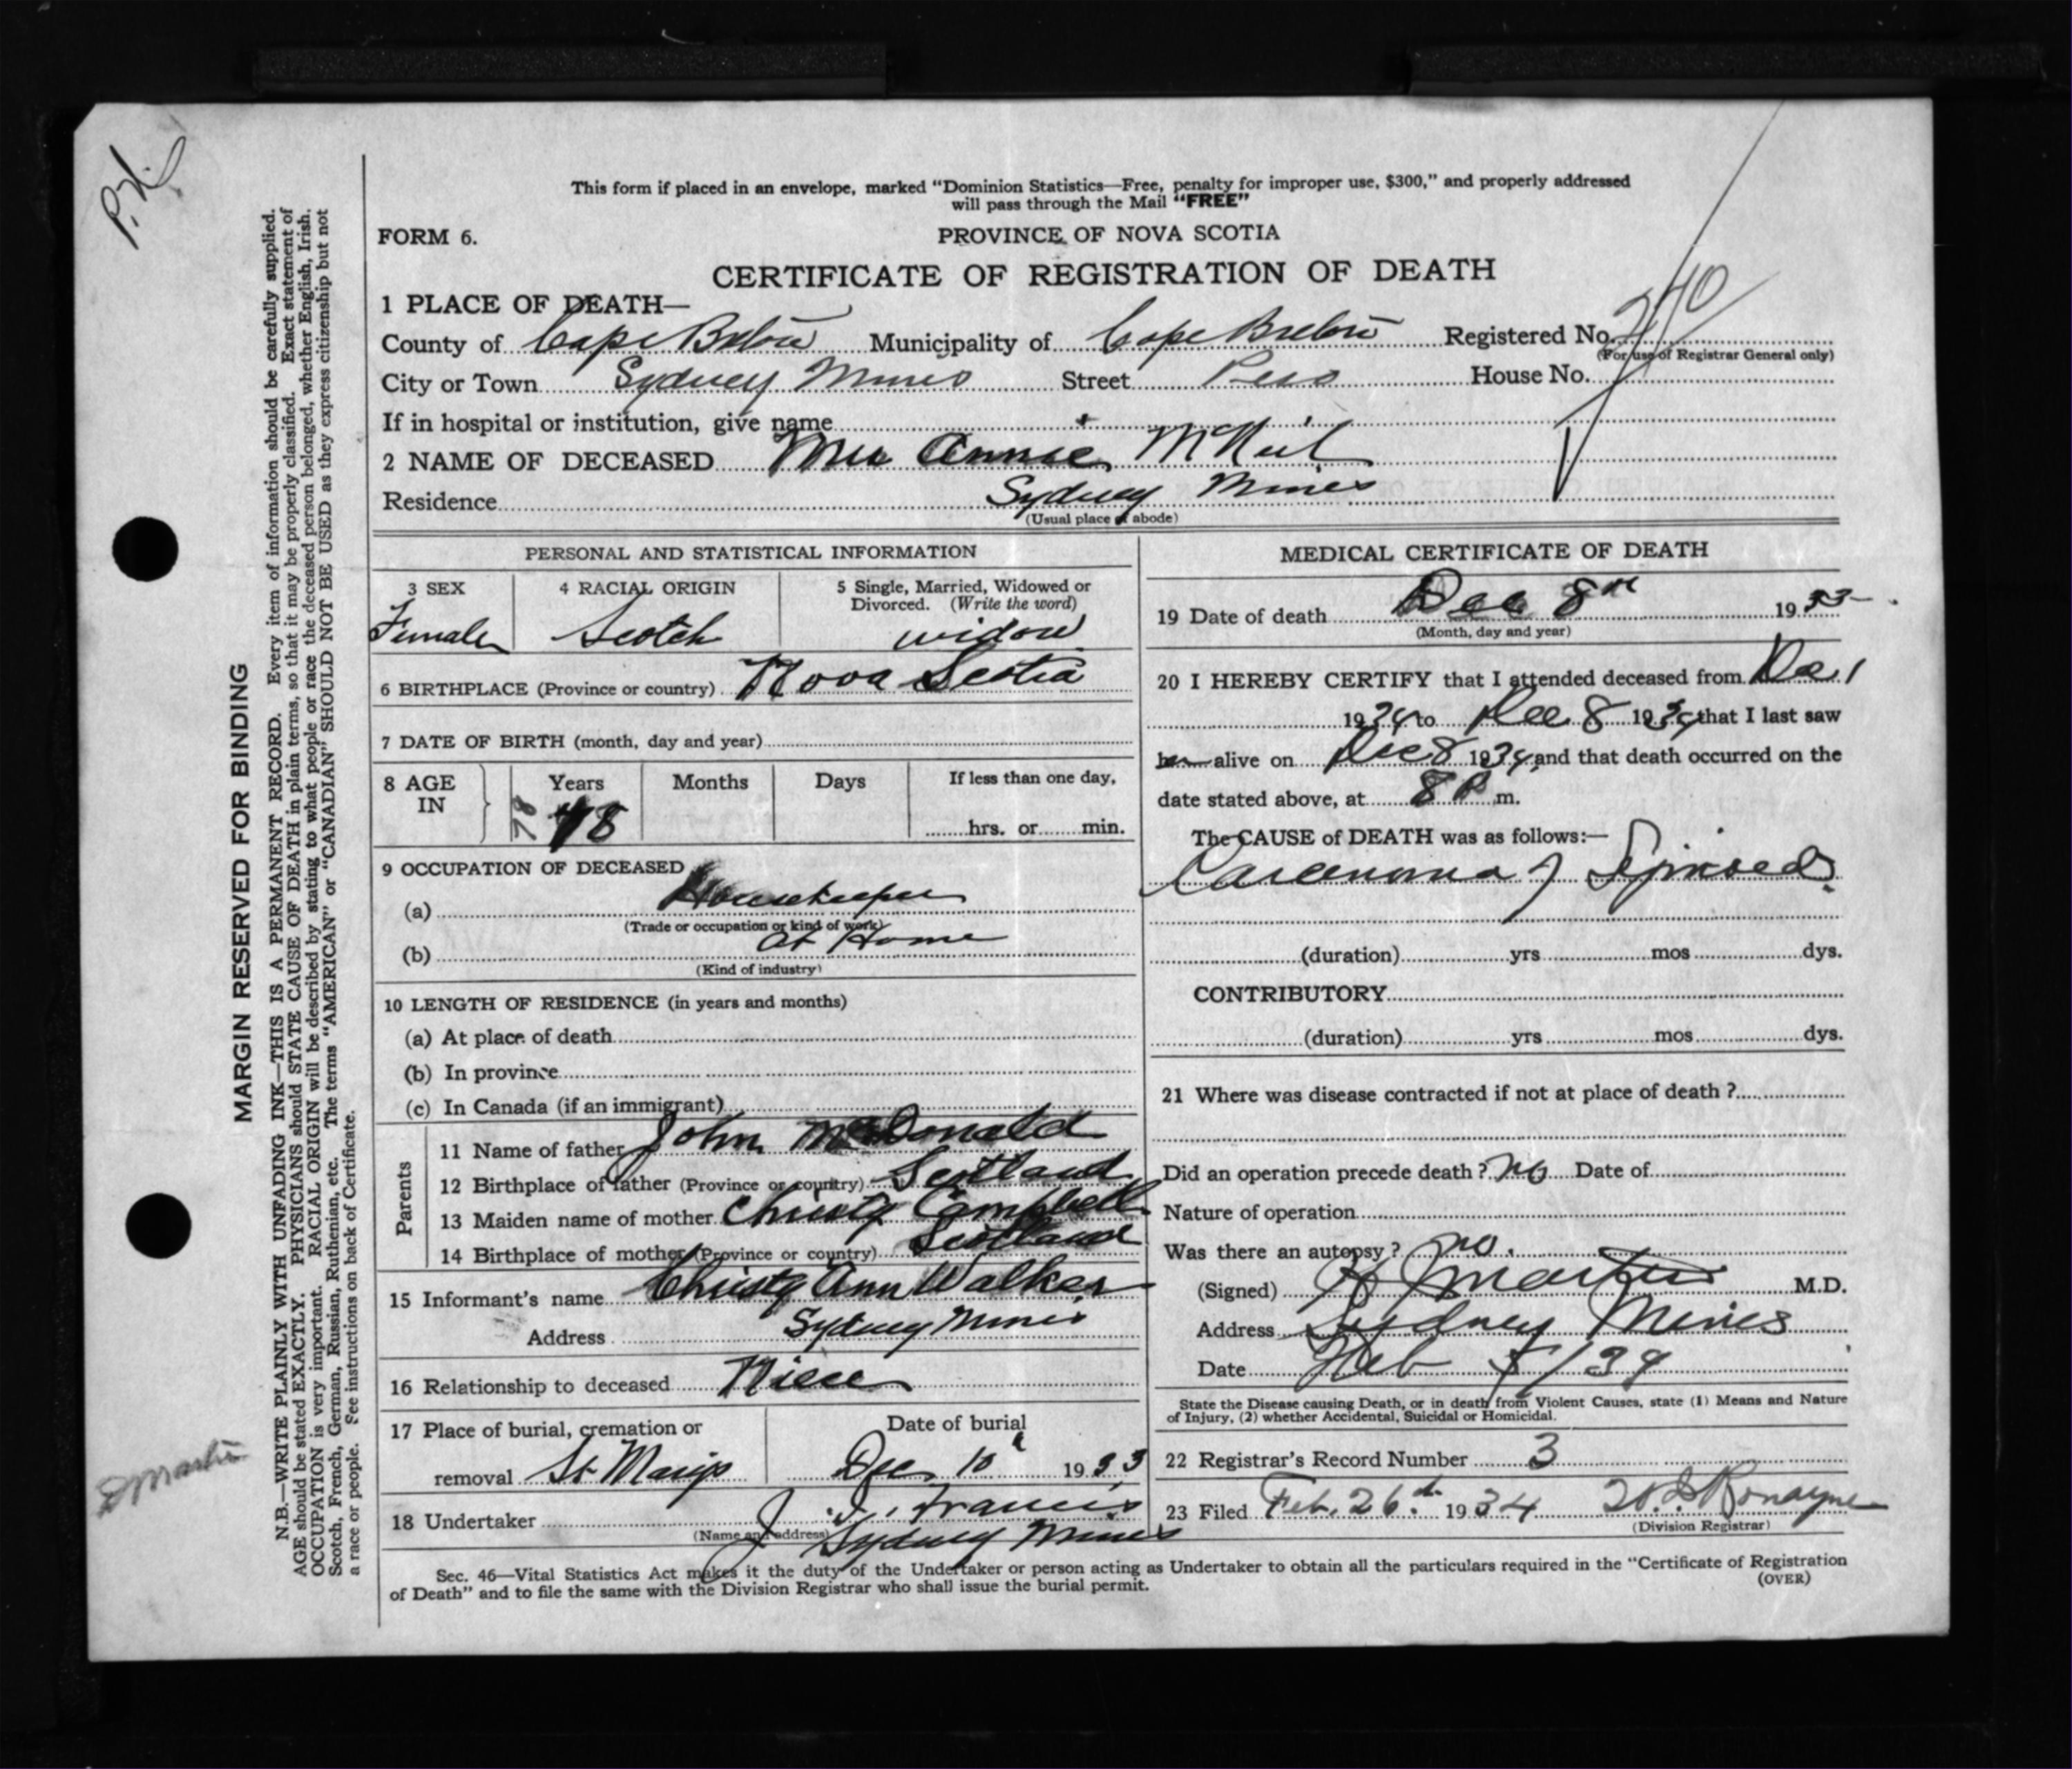 This form if placed in an envelope, marked “Dominion Statistics—Free, penalty for improper use, $300,” and properly addressed
will pass through the Mail “FREE”
FORM 6.
PROVINCE OF NOVA SCOTIA
CERTIFICATE OF REGISTRATION OF DEATH
1 PLACE OF DEATH—
County of Cape Breton Municipality of Cape Breton Registered No.
(For use of Registrar General only)
City or Town Sydney Mines Street House No.
If in hospital or institution, give name
2 NAME OF DECEASED Mrs Annie McNeil
Residence Sydney Mines
(Usual place of abode)
PERSONAL AND STATISTICAL INFORMATION
3 SEX 4 RACIAL ORIGIN 5 Single, Married, Widowed or
Divorced. (Write the word)
Female Scotch widow
6 BIRTHPLACE (Province or country) Nova Scotia
7 DATE OF BIRTH (month, day and year)
8 AGE IN Years Months Days If less than one day,
78 78 hrs. or min.
9 OCCUPATION OF DECEASED
(a) Housekeeper
(Trade or occupation or kind of work)
(b) At Home
(Kind of industry)
10 LENGTH OF RESIDENCE (in years and months)
(a) At place of death
(b) In province
(c) In Canada (if an immigrant)
Parents
11 Name of father John McDonald
12 Birthplace of father (Province or country) Scotland
13 Maiden name of mother Christy Campbell
14 Birthplace of mother (Province or country) Scotland
15 Informant's name Christy Ann Walker
Address Sydney Mines
16 Relationship to deceased Niece
17 Place of burial, cremation or Date of burial
removal St Marys Dec 10 1933
18 Undertaker J. J. Francis
(Name and address) Sydney Mines
MEDICAL CERTIFICATE OF DEATH
19 Date of death Dec 8th 1933
(Month, day and year)
20 I HEREBY CERTIFY that I attended deceased from Dec 1
1934 to Dec 8 1934 that I last saw
her alive on Dec 8 1934 and that death occurred on the
date stated above, at 8 P m.
The CAUSE of DEATH was as follows:—
Carcenoma of
(duration) yrs mos dys.
CONTRIBUTORY
(duration) yrs mos dys.
21 Where was disease contracted if not at place of death ?
Did an operation precede death ? No Date of
Nature of operation
Was there an autopsy ? no.
(Signed) M.D.
Address Sydney Mines
Date Feb /34
State the Disease causing Death, or in death from Violent Causes, state (1) Means and Nature
of Injury, (2) whether Accidental, Suicidal or Homicidal.
22 Registrar's Record Number 3
23 Filed Feb. 26th 1934 Ronayne
(Division Registrar)
Sec. 46—Vital Statistics Act makes it the duty of the Undertaker or person acting as Undertaker to obtain all the particulars required in the “Certificate of Registration
of Death” and to file the same with the Division Registrar who shall issue the burial permit.
(OVER)
MARGIN RESERVED FOR BINDING
N.B.—WRITE PLAINLY WITH UNFADING INK—THIS IS A PERMANENT RECORD. Every item of information should be carefully supplied.
AGE should be stated EXACTLY. PHYSICIANS should STATE CAUSE OF DEATH in plain terms, so that it may be properly classified. Exact statement of
OCCUPATION is very important. RACIAL ORIGIN will be described by stating to what people or race the deceased person belonged, whether English, Irish.
Scotch, French, German, Russian, Ruthenian, etc. The terms “AMERICAN” or “CANADIAN” SHOULD NOT BE USED as they express citizenship but not
a race or people. See instructions on back of Certificate.